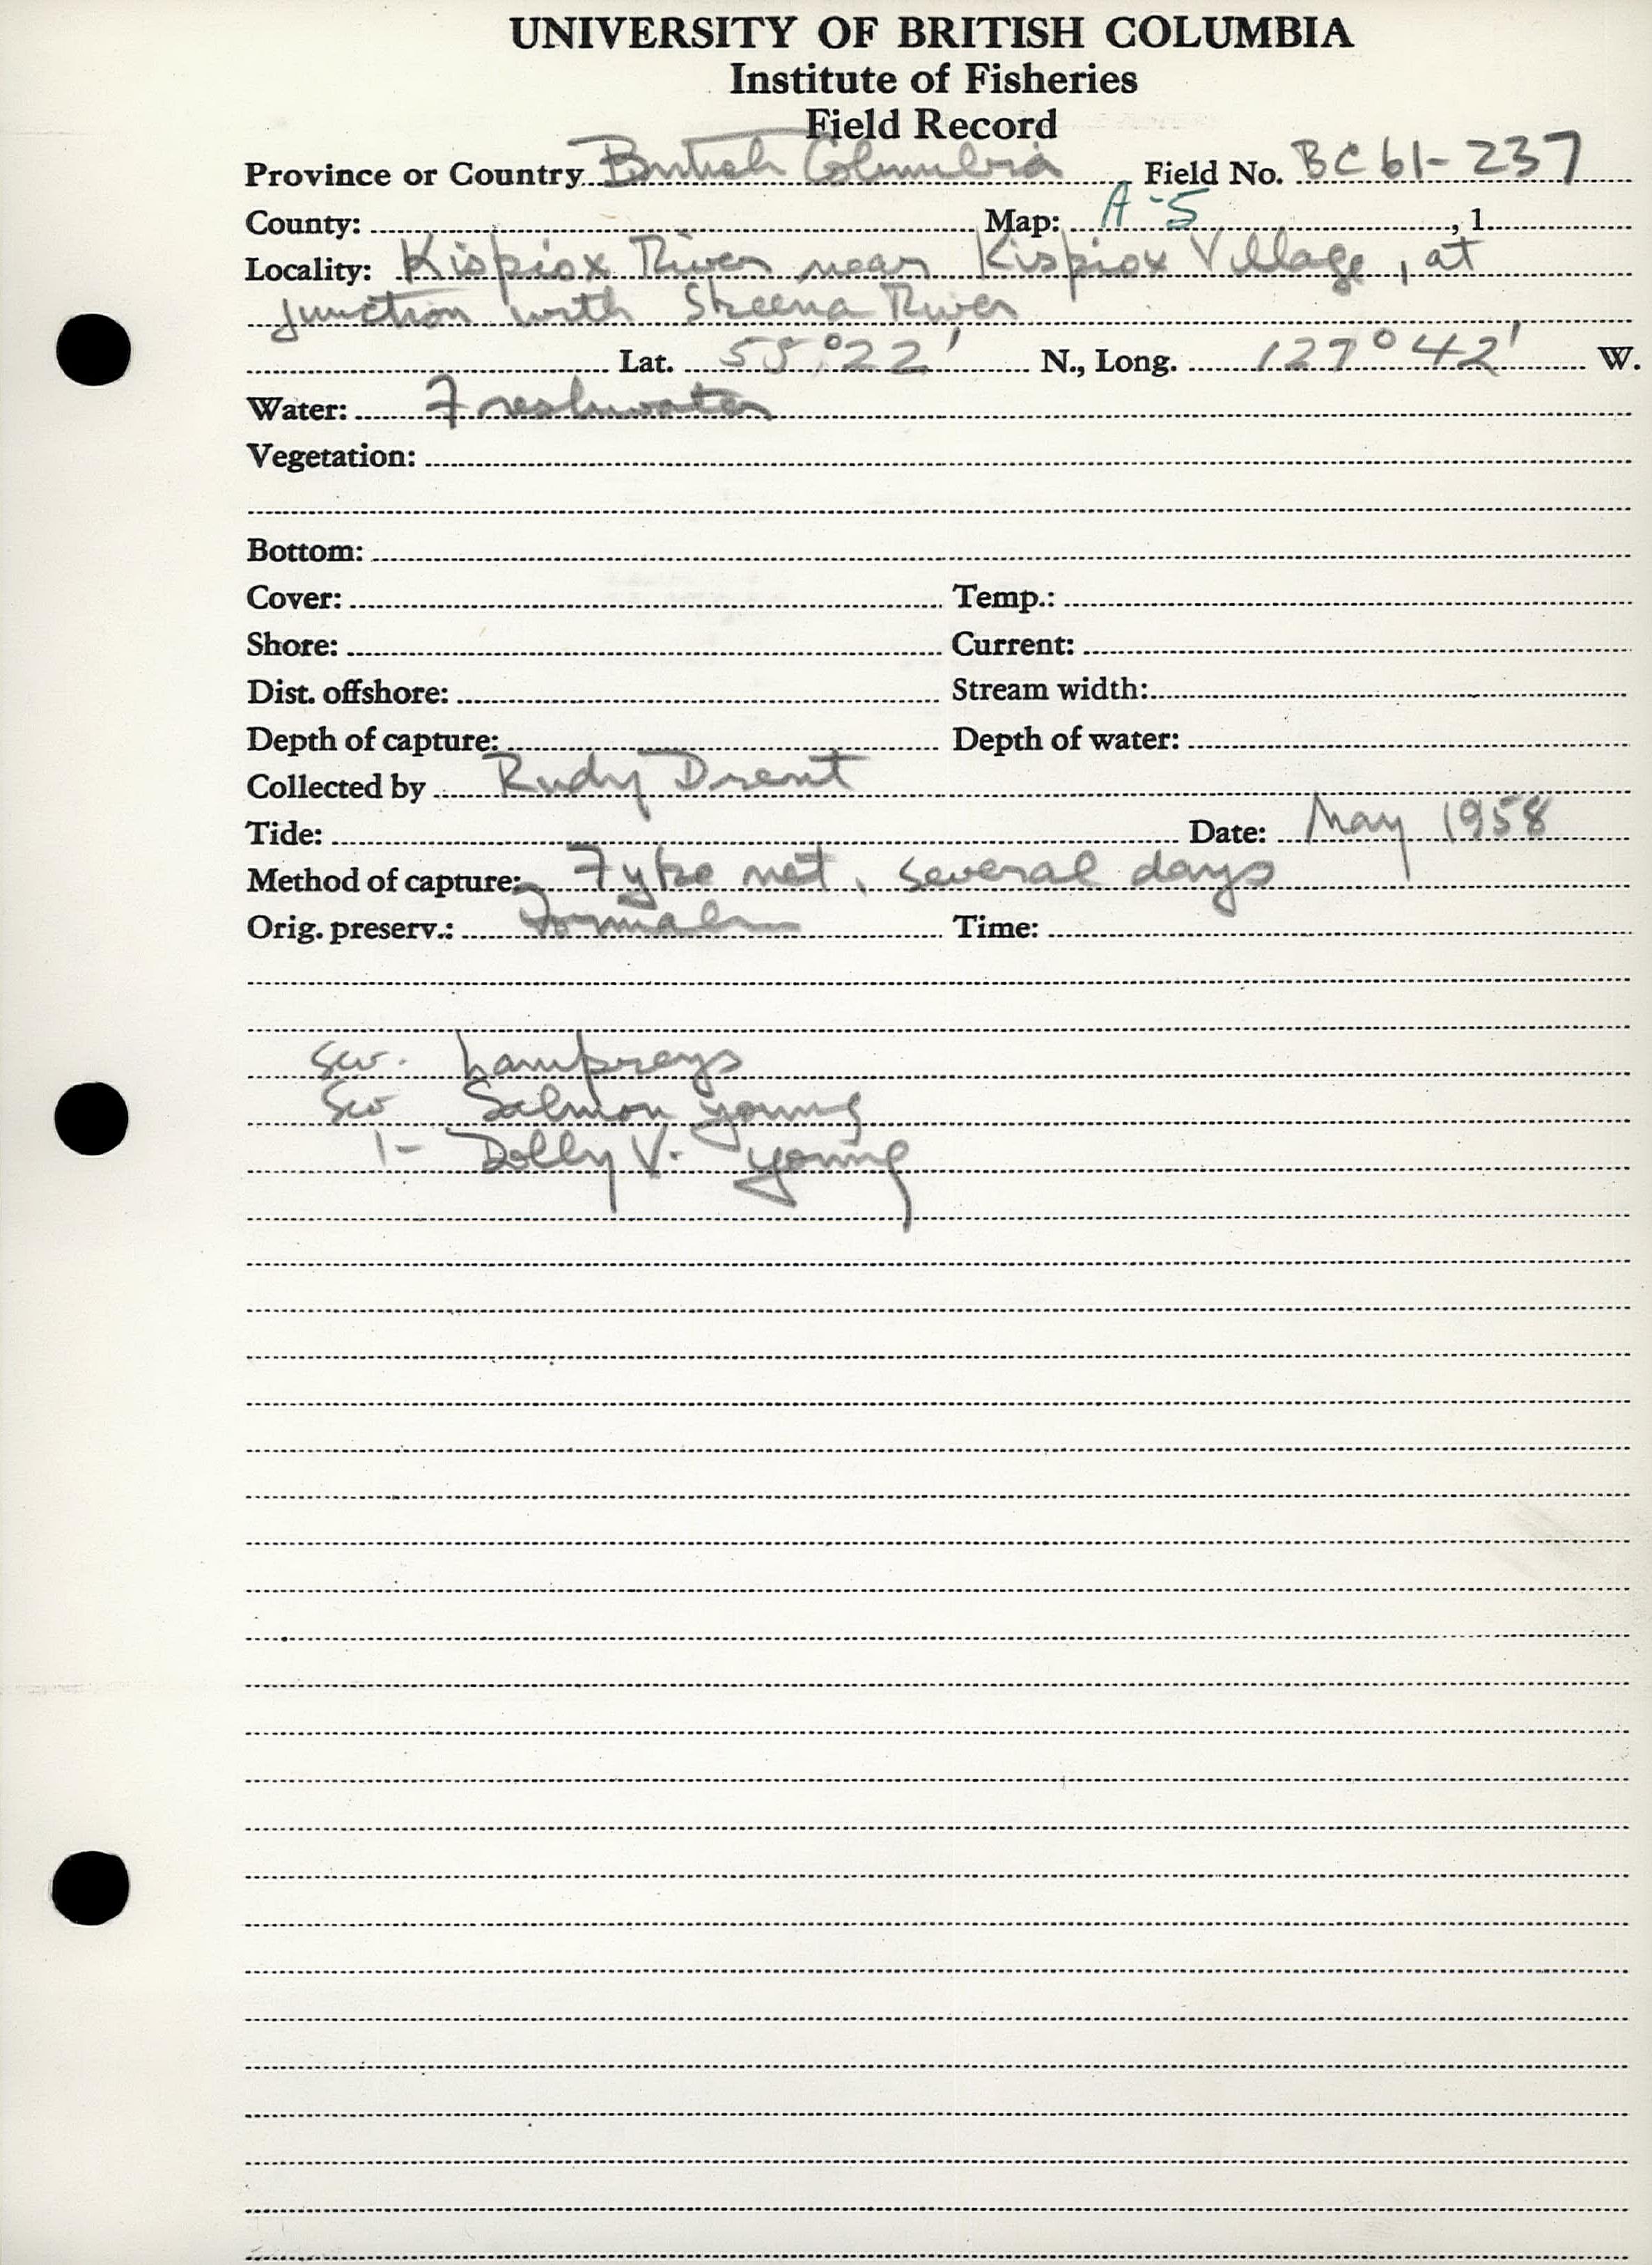 UNIVERSITY OF BRITISH COLUMBIA
Institute of Fisheries
Field Record
Province or Country British Columbia Field No. BC 61-237
County: Map: A-5, 1
Locality: Kispiox River near Kispiox Village, at
junction with Skeena River
Lat. 55°22' N., Long. 127°42' W.
Water: Freshwater
Vegetation:
Bottom:
Cover: Temp.:
Shore: Current:
Dist. offshore: Stream width:
Depth of capture: Depth of water:
Collected by Rudy Drent
Tide: Date: May 1958
Method of capture: Fyke net, several days
Orig. preserv.: Formalin Time:
sev. Lampreys
sev Salmon young
1- Dolly V. young